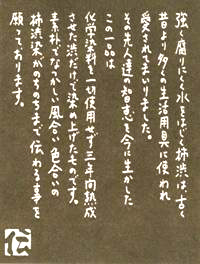 強く腐りにくく水をはじく柿渋は、古く
昔より多くの生活用具に使われ
愛されてまいりました。
その先人達の知恵を今に生かした
この一品は
化学染料を一切使用せず三年間熟成
させた渋だけで染め上げたものです。
素朴でなつかしい風合い、色合いの
柿渋染がのちのちまで伝わる事を
願っております。
伝